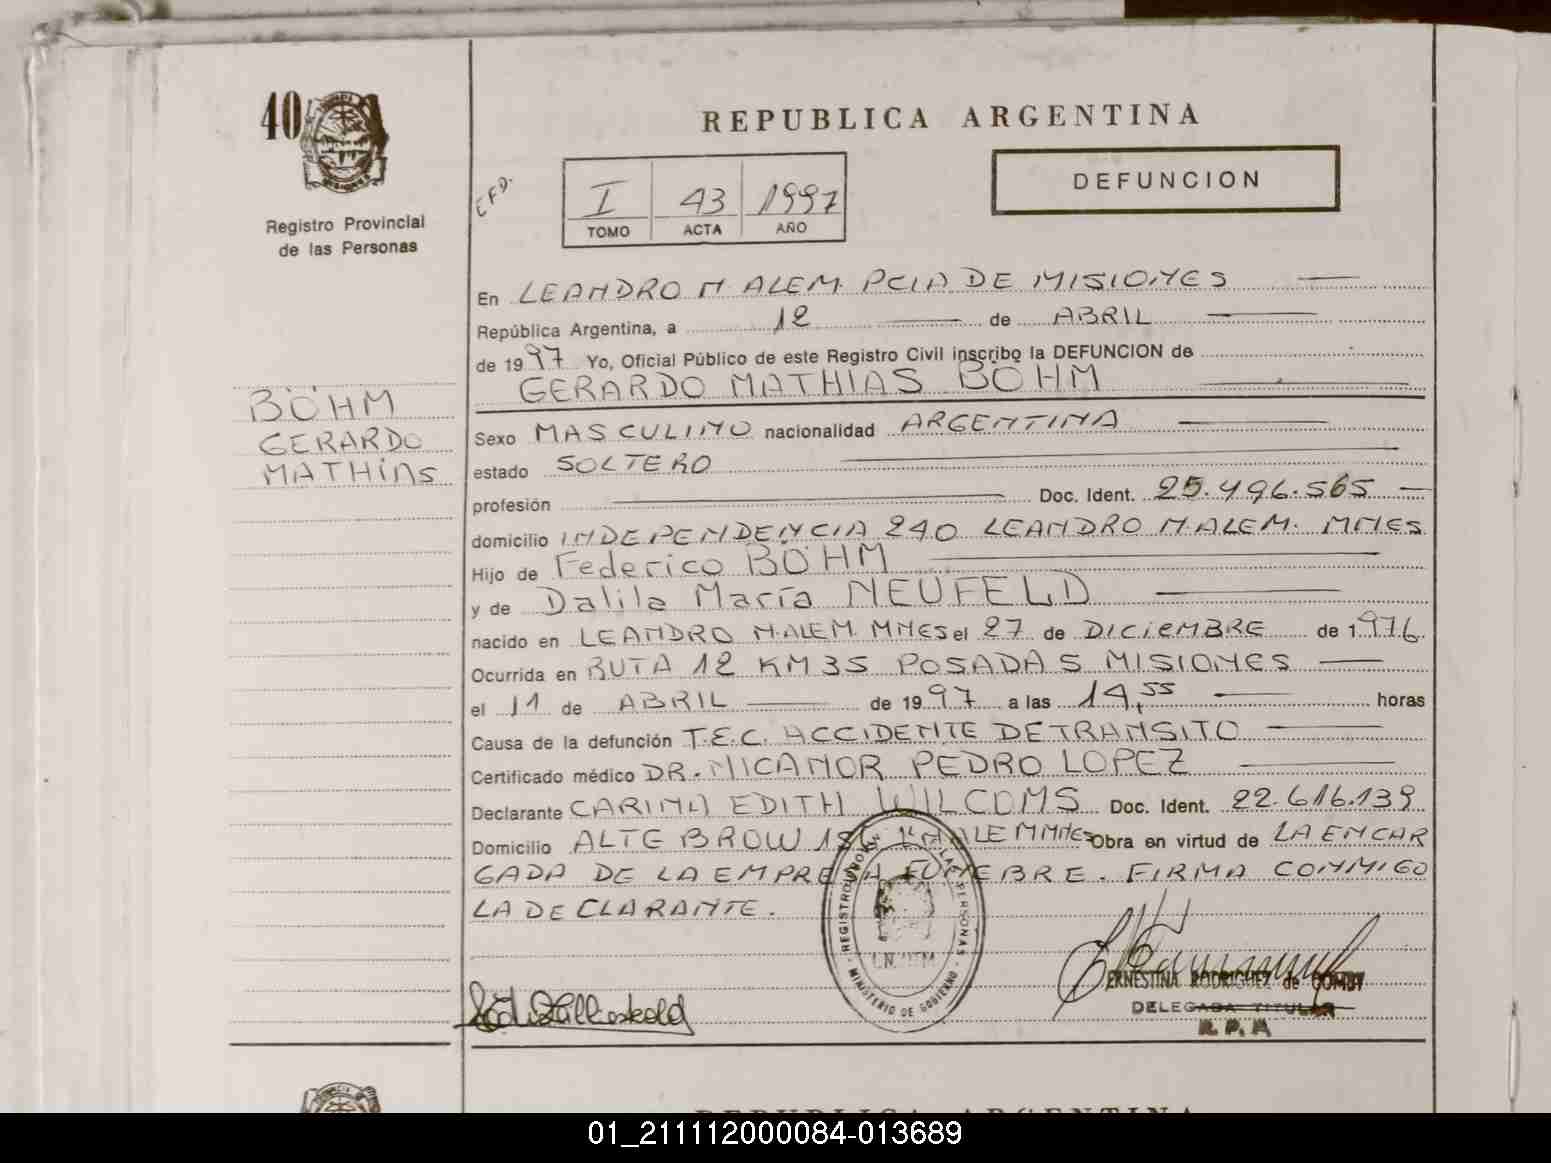 40
Registro Provincial
de las Personas
REPUBLICA ARGENTINA
I 43 1997
TOMO ACTA AÑO
DEFUNCION
En LEANDRO N ALEM PCIA DE MISIONES
República Argentina, a 12 de ABRIL
de 1997 Yo, Oficial Público de este Registro Civil inscribo la DEFUNCION de
GERARDO MATHIAS BÖHM
BÖHM
GERARDO
MATHIAS
Sexo MASCULINO nacionalidad ARGENTINA
estado SOLTERO
profesión Doc. Ident. 25.496.565
domicilio INDEPENDENCIA 240 LEANDRO N. ALEM. MNES
Hijo de Federico BÖHM
y de Dalila María NEUFELD
nacido en LEANDRO N. ALEM MNES el 27 de DICIEMBRE de 1976.
Ocurrida en RUTA 12 KM 35 POSADAS MISIONES
el 11 de ABRIL de 1997 a las 14,55 horas
Causa de la defunción T.E.C. ACCIDENTE DE TRANSITO
Certificado médico DR. NICANOR PEDRO LOPEZ
Declarante CARINA EDITH WILCOMS Doc. Ident. 22.616.139
Domicilio ALTE BROW ALEM MNES Obra en virtud de LA ENCAR
GADA DE LA EMPRESA FUNEBRE. FIRMA CONMIGO
LA DECLARANTE.
REGISTRO PROV. DE LAS PERSONAS
MINISTERIO DE GOBIERNO
ERNESTINA RODRIGUEZ de
DELEGADA TITULAR
R. P. P.
REPUBLICA ARGENTINA
01_211112000084-013689